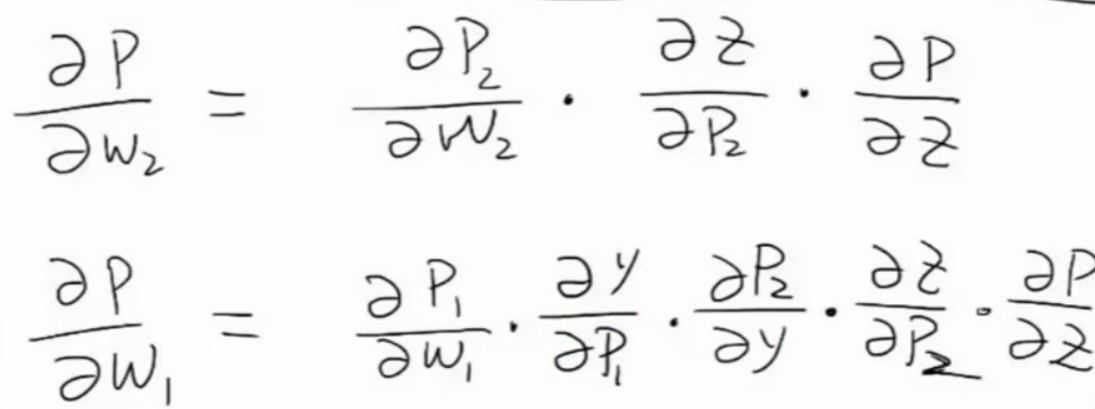 ∂P/∂w₂ = ∂P₂/∂w₂ · ∂z/∂P₂ · ∂P/∂z
∂P/∂w₁ = ∂P₁/∂w₁ · ∂y/∂P₁ · ∂P₂/∂y · ∂z/∂P₂ · ∂P/∂z